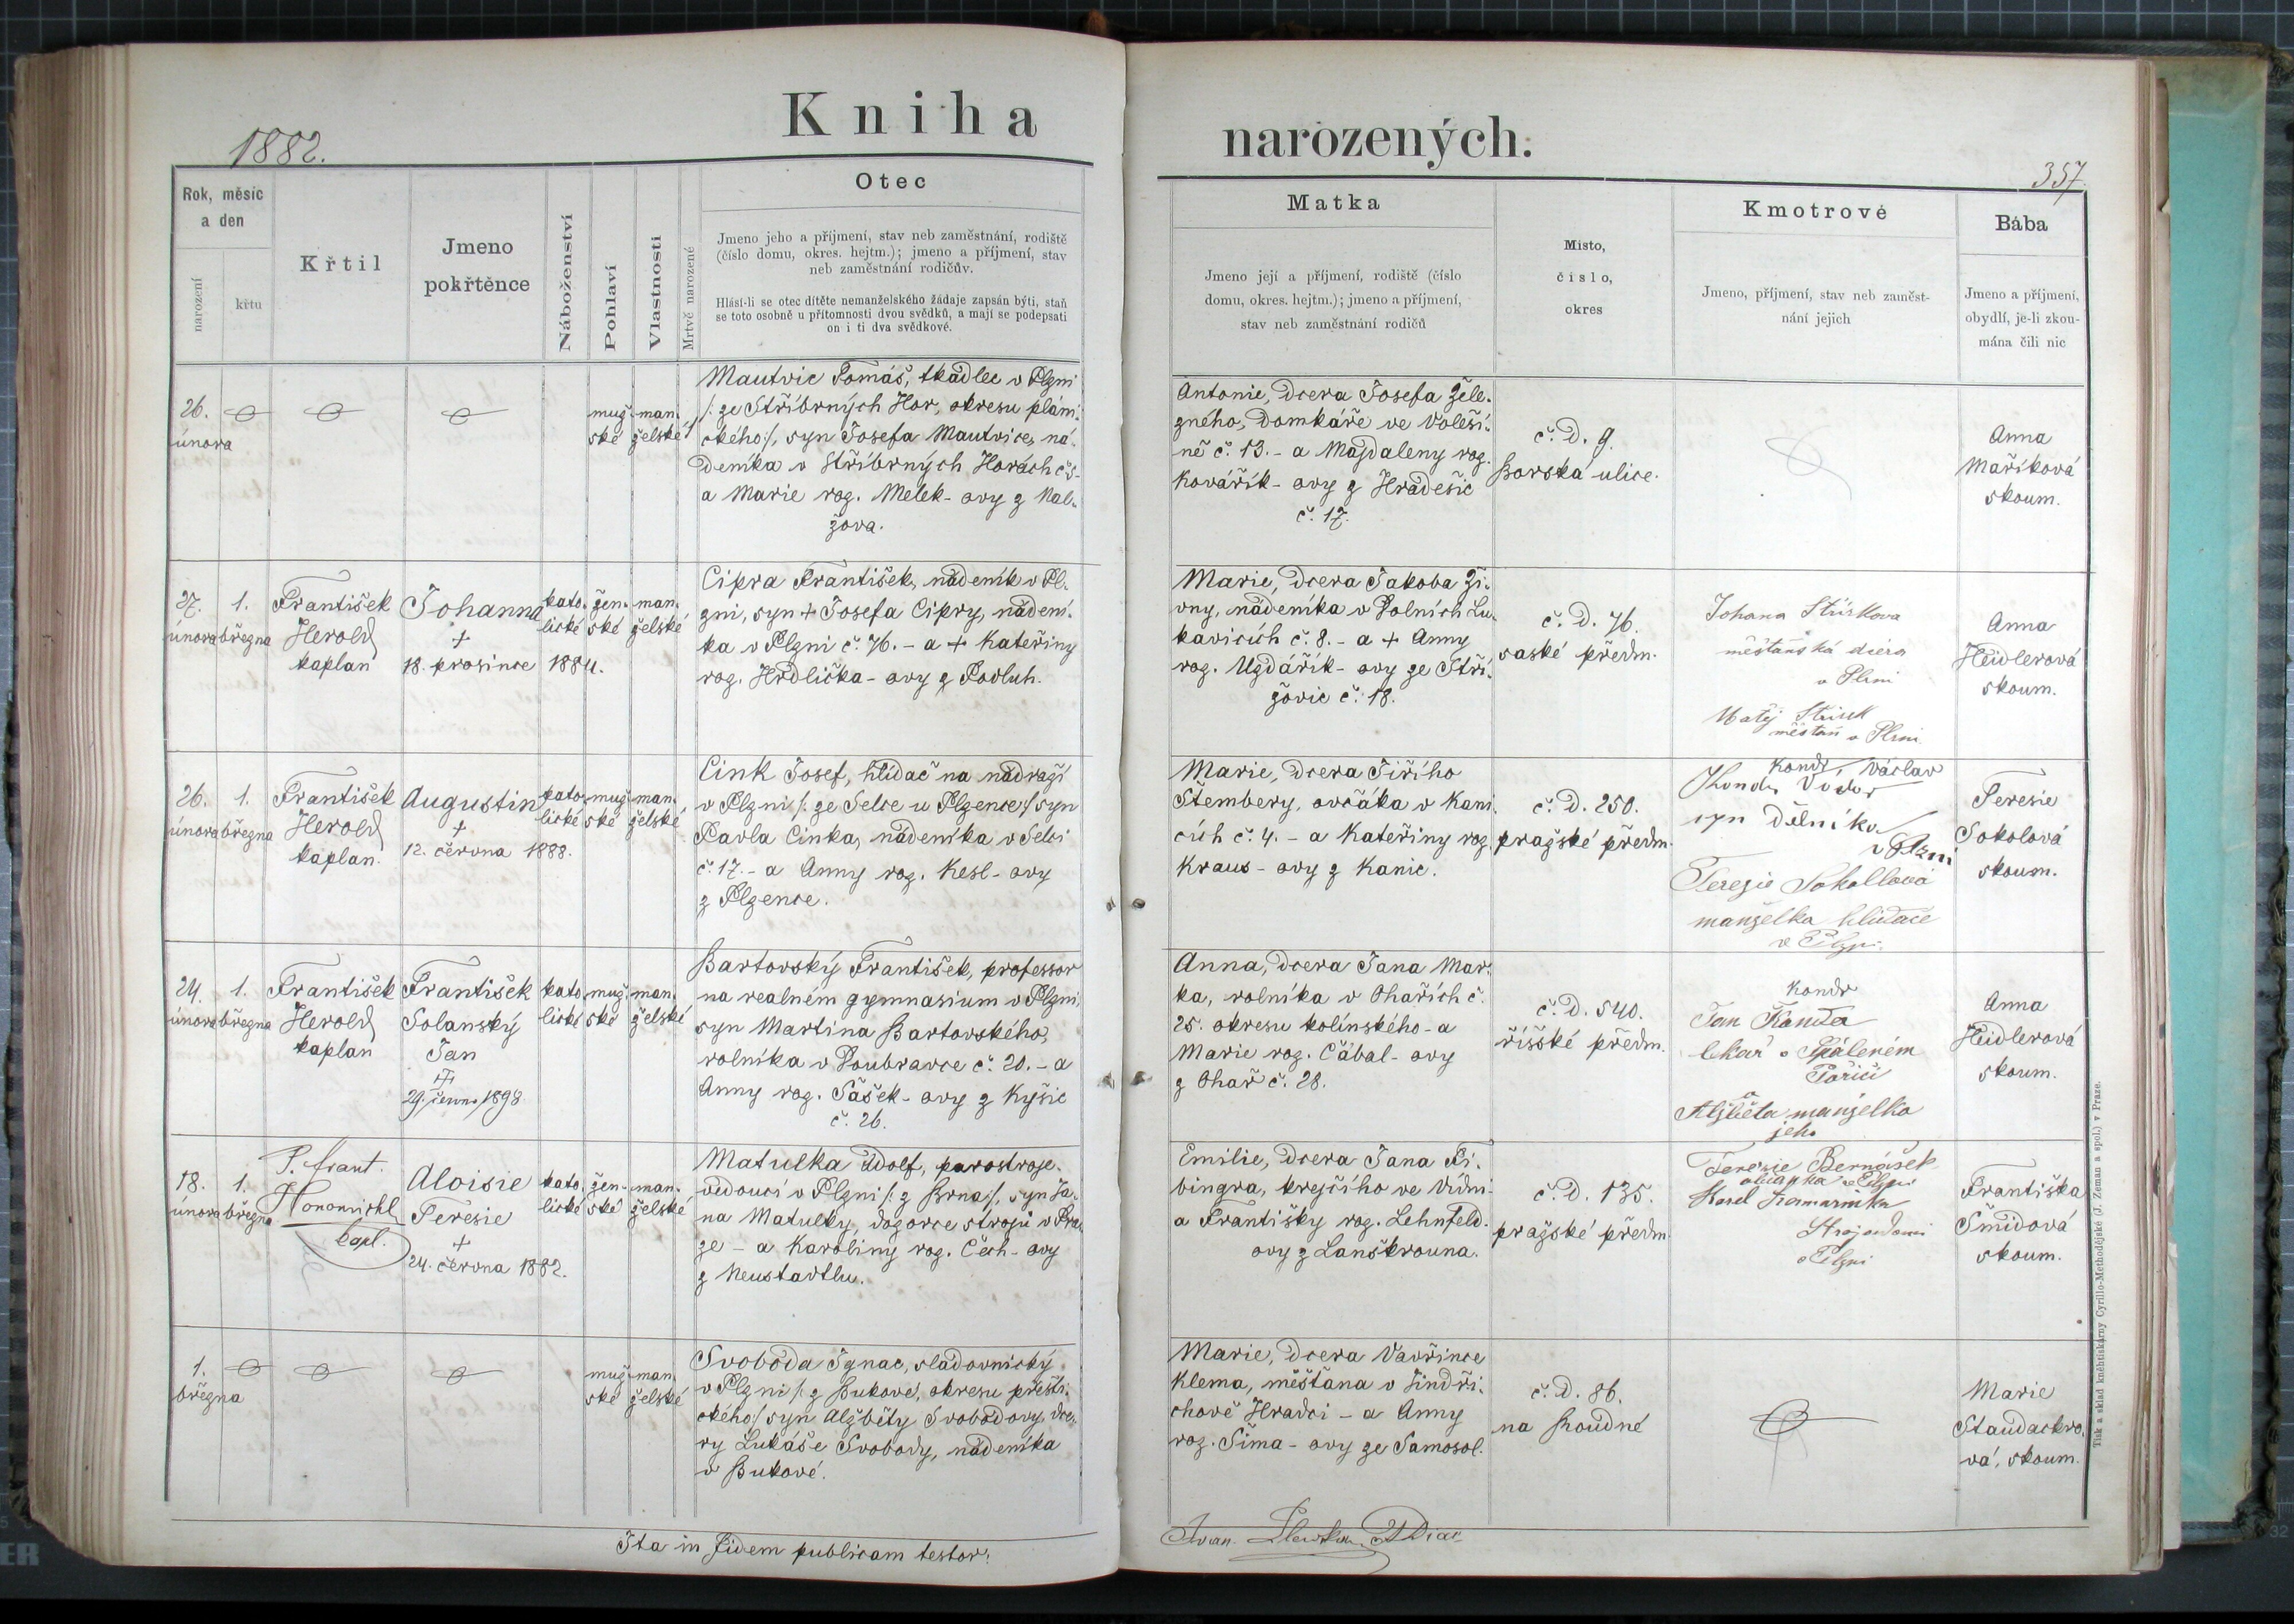 Kniha
narozených.
1882.
357.
Rok, měsíc
a den
narození
křtu
Křtil
Jmeno
pokřtěnce
Náboženství
Pohlaví
Vlastnosti
Mrtvě narozené
Otec
Jmeno jeho a příjmení, stav neb zaměstnání, rodiště
(číslo domu, okres. hejtm.); jmeno a příjmení, stav
neb zaměstnání rodičův.
Hlásí-li se otec dítěte nemanželského žádaje zapsán býti, staň
se toto osobně u přítomnosti dvou svědků, a mají se podepsati
on i ti dva svědkové.
Matka
Jmeno její a příjmení, rodiště (číslo
domu, okres. hejtm.); jmeno a příjmení,
stav neb zaměstnání rodičů
Místo,
číslo,
okres
Kmotrové
Jmeno, příjmení, stav neb zaměst-
nání jejich
Bába
Jmeno a příjmení,
obydlí, je-li zkou-
mána čili nic
26.
února
muž-
ské
man-
želské
1
Mautvic Tomáš, tkadlec v Plzni
/: ze Stříbrných Hor, okresu pláni-
ckého:/, syn Josefa Mautvice, ná-
deníka v Stříbrných Horách č. 5-
a Marie roz. Melek- ovy z Nal-
žova.
Antonie, dcera Josefa Žele-
zného, domkáře ve Voleší-
ně č. 13. - a Magdaleny roz.
Kovářík- ovy z Hradešic
č. 17.
č. d. 9.
Borská ulice.
Anna
Maříková
skoum.
27.
února
1.
března
František
Herold
kaplan
Johanna
+
18. prosince 1884.
kato-
lické
žen-
ské
man-
želské
Cipra František, nádeník v Pl-
zni, syn + Josefa Cipry, nádení-
ka v Plzni č. 76. - a + Kateřiny
roz. Hrdlička- ovy z Podluh.
Marie, dcera Jakoba Ži-
vny, nádeníka v Dolních Lu-
kavicích č. 8. - a + Anny
roz. Uzdařík- ovy ze Stři-
žovic č. 18.
č. d. 76.
saské předm.
Johana Stürkova
měšťanská dcera
v Plzni
Matěj Stürk
měšťan v Plzni
Anna
Heidlerová
skoum.
26.
února
1.
března
František
Herold
kaplan.
Augustin
+
12. června 1888.
kato-
lické
muž-
ské
man-
želské
Cink Josef, hlídač na nádraží
v Plzni /: ze Selce u Plzence:/ syn
Pavla Cinka, nádeníka v Selci
č. 17. - a Anny roz. Kesl- ovy
z Plzence.
Marie, dcera Jiřího
Štembery, ovčáka v Kani-
cích č. 4. - a Kateřiny roz.
Kraus- ovy z Kanic.
č. d. 250.
pražské předm.
Kondr, Václav
syn dělníka
v Plzni
Terezie Sokollová
manželka hlídače
v Plzni
Teresie
Sokolová
skoum.
24.
února
1.
března
František
Herold
kaplan
František
Solanský
Jan
29. června 1898
kato-
lické
muž-
ské
man-
želské
Bartovský František, professor
na realném gymnasium v Plzni,
syn Martina Bartovského,
rolníka v Doubravce č. 20. - a
Anny roz. Sašek- ovy z Kyšic
č. 26.
Anna, dcera Jana Mar-
ka, rolníka v Ohařích č.
25. okresu kolínského - a
Marie roz. Cábal- ovy
z Ohař č. 28.
č. d. 540.
říšské předm.
Kondr
Jan
lékař v Spáleném
Poříčí
a
Alžběta manželka
jeho
Anna
Heidlerová
skoum.
18.
února
1.
března
P. Frant.
Kapl.
Aloisie
Teresie
+
24. června 1882.
kato-
lické
žen-
ské
man-
želské
Matulka Adolf, parostroje-
vedoucí v Plzni /: z Brna:/, syn Ja-
na Matulky, dozorce strojů v Pra-
ze - a Karoliny roz. Čech- ovy
z Neustadtlu.
Emilie, dcera Jana Fi-
bingra, krejčího ve Vídni-
a Františky roz. Lehnfeld-
ovy z Lanškrouna.
č. d. 135.
pražské předm.
Terezie Bernášek
občanka v Plzni
Karel
v Plzni
Františka
Šmídová
skoum.
1.
března
muž-
ské
man-
želské
Svoboda Ignac, sladovnický
v Plzni /: z Bukové, okresu přešti-
ckého:/ syn Alžběty Svobodovy, dce-
ry Lukáše Svobody, nádeníka
v Bukové.
Marie, dcera Vavřince
Klema, měšťana v Jindři-
chově Hradci - a Anny
roz. Šíma- ovy ze Samosol.
č. d. 86.
na Roudné
Marie
Staudackro-
vá, skoum.
Ita in fidem publicam testor:
Tisk a sklad knihtiskárny Cyrillo-Methodějské (J. Zeman a spol.) v Praze.